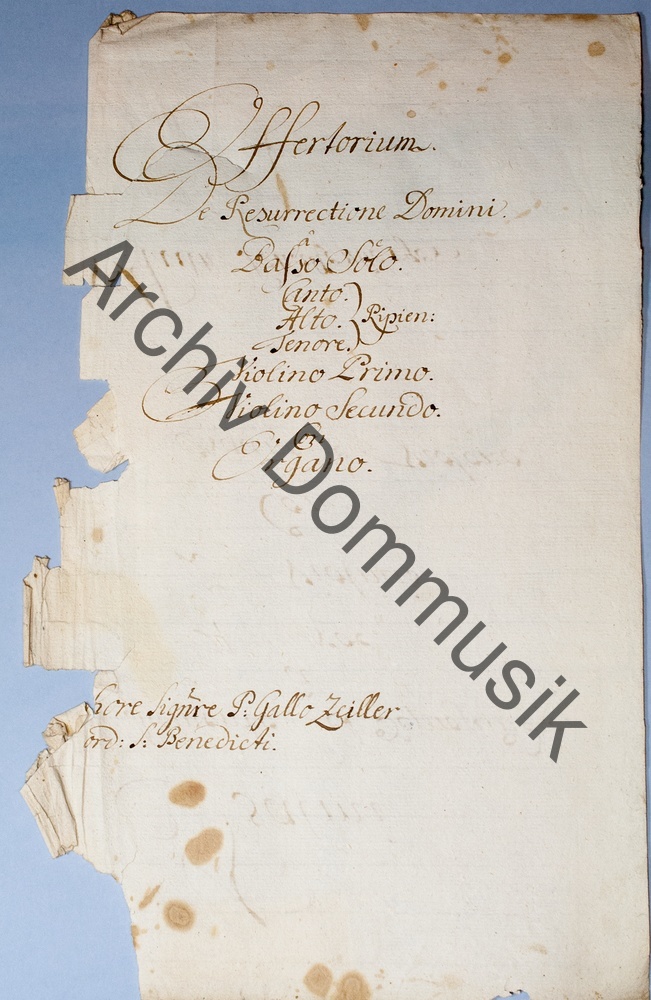 Offertorium.
De Resurrectione Domini.
â
Basso Solo.
Canto.
Alto. Ripien:
Tenore.
Violino Primo.
Violino Secundo.
Con
Organo.
thore Signre P: Gallo Zeiller
ord: S: Benedicti.
Archiv Dommusik